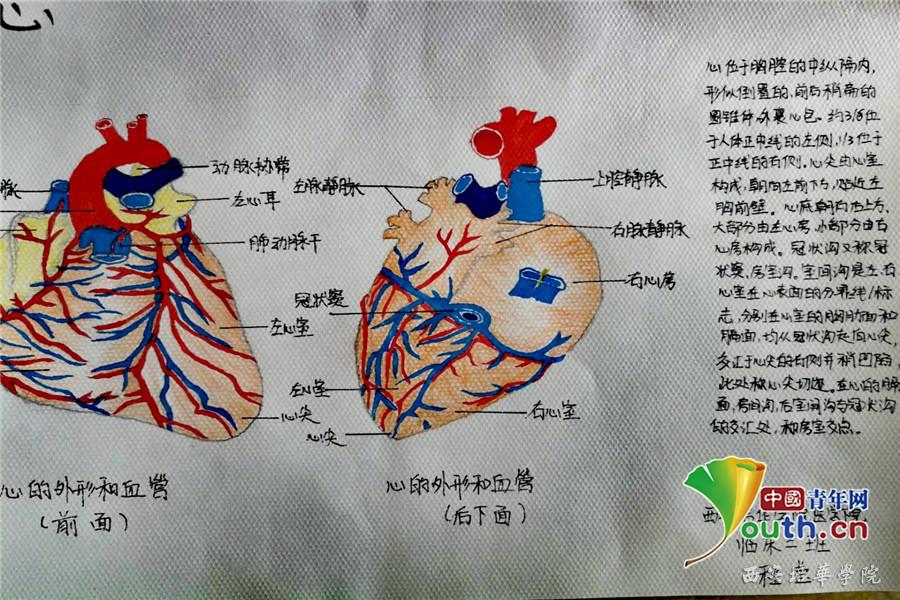 心
动脉韧带
左心耳
肺动脉干
左心室
心尖
心的外形和血管
(前面)
左肺静脉
冠状窦
左心室
心尖
上腔静脉
右肺静脉
右心房
右心室
心的外形和血管
(后下面)
心位于胸腔的中纵隔内,
形似倒置的,前后稍扁的
圆锥体,外裹心包。约2/3位
于人体正中线的左侧,1/3位于
正中线的右侧,心尖由心室
构成,朝向左前下方,贴近左
胸前壁。心底朝向右上方,
大部分由左心房,小部分由右
心房构成。冠状沟又称冠
状窦,房室沟。室间沟是左,右
心室在心表面的分界线/标
志,分别在心室的胸肋面和
膈面,均从冠状沟走向心尖,
多止于心尖的右侧并稍凹陷,
此处称心尖切迹。在心的膈
面,房间沟,后室间沟与冠状沟
的交汇处,称房室交点。
中國青年网
youth.cn
临床二班
西安培華学院